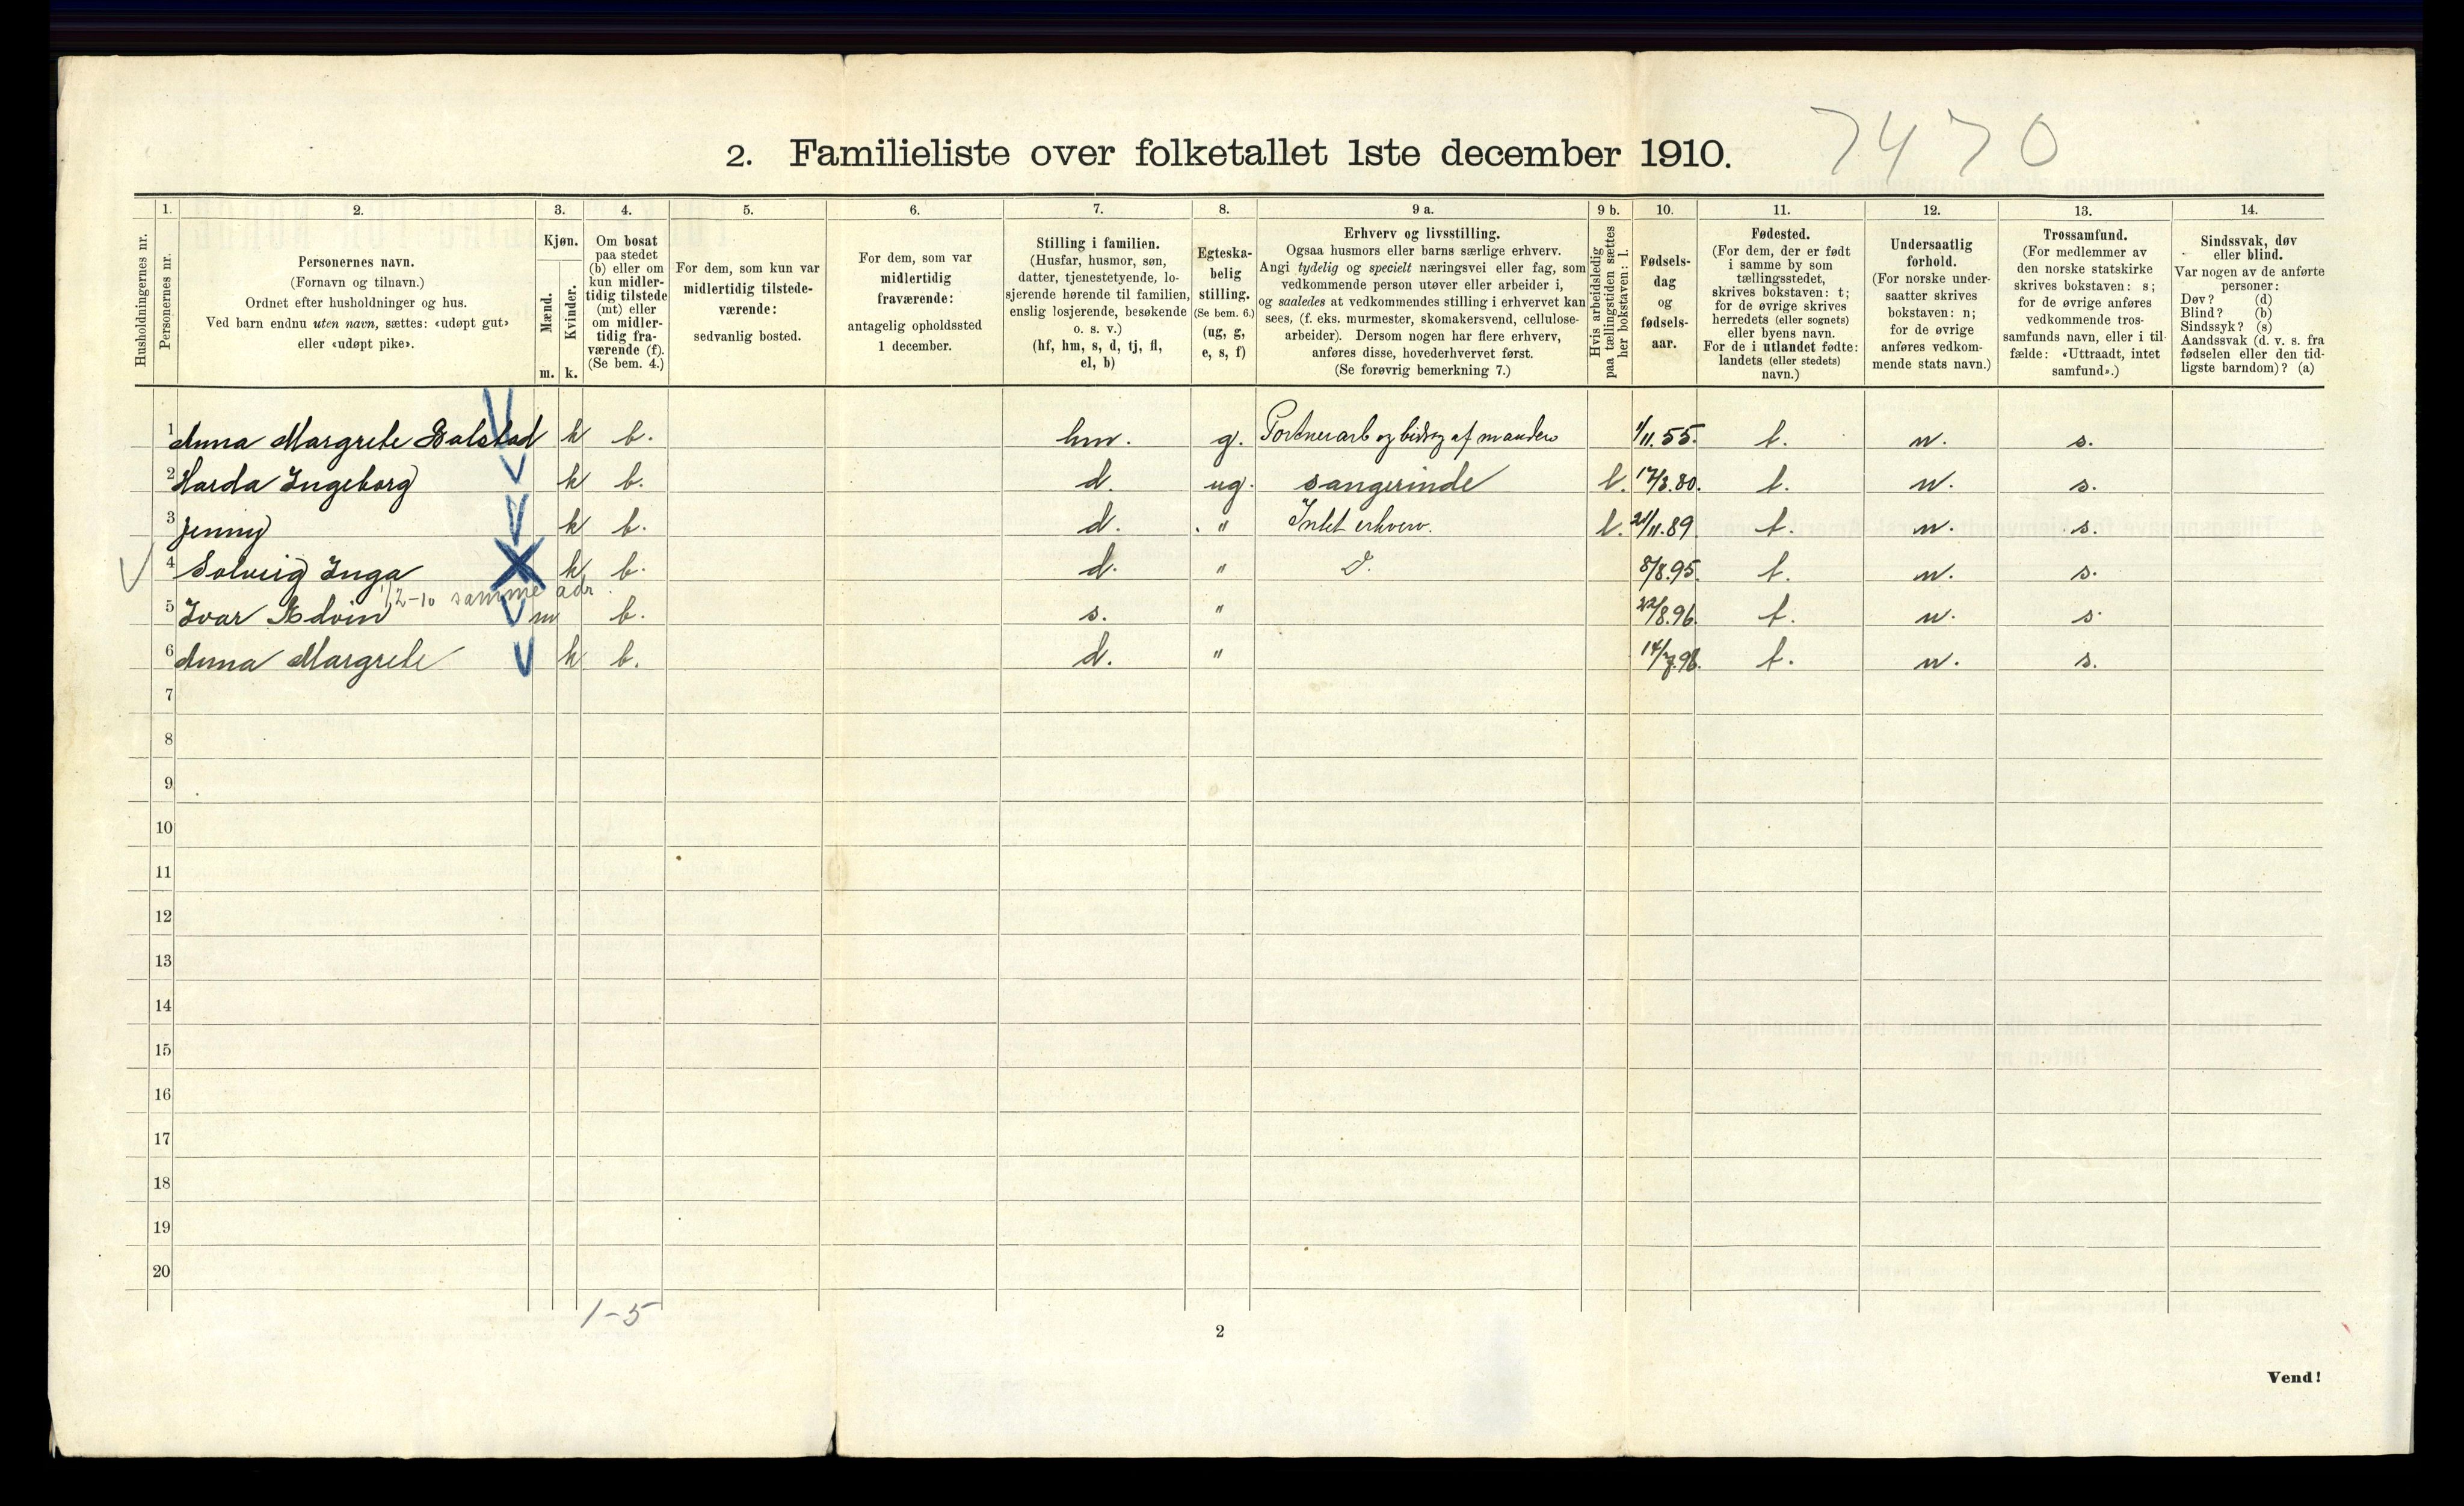 7470
2. Familieliste over folketallet 1ste december 1910.
1. 2. 3. 4. 5. 6. 7. 8. 9 a. 9 b. 10. 11. 12. 13. 14.
Husholdningernes nr.
Personernes nr.
Personernes navn.
(Fornavn og tilnavn.)
Ordnet efter husholdninger og hus.
Ved barn endnu uten navn, sættes: «udøpt gut»
eller «udøpt pike».
Kjøn.
Mænd.
Kvinder.
m. k.
Om bosat
paa stedet
(b) eller om
kun midler-
tidig tilstede
(mt) eller
om midler-
tidig fra-
værende (f).
(Se bem. 4.)
For dem, som kun var
midlertidig tilstede-
værende:
sedvanlig bosted.
For dem, som var
midlertidig
fraværende:
antagelig opholdssted
1 december.
Stilling i familien.
(Husfar, husmor, søn,
datter, tjenestetyende, lo-
sjerende hørende til familien,
enslig losjerende, besøkende
o. s. v.)
(hf, hm, s, d, tj, fl,
el, b)
Egteska-
belig
stilling.
(Se bem. 6.)
(ug, g,
e, s, f)
Erhverv og livsstilling.
Ogsaa husmors eller barns særlige erhverv.
Angi tydelig og specielt næringsvei eller fag, som
vedkommende person utøver eller arbeider i,
og saaledes at vedkommendes stilling i erhvervet kan
sees, (f. eks. murmester, skomakersvend, cellulose-
arbeider). Dersom nogen har flere erhverv,
anføres disse, hovederhvervet først.
(Se forøvrig bemerkning 7.)
Hvis arbeidsledig
paa tællingstiden sættes
her bokstaven: l.
Fødsels-
dag
og
fødsels-
aar.
Fødested.
(For dem, der er født
i samme by som
tællingsstedet,
skrives bokstaven: t;
for de øvrige skrives
herredets (eller sognets)
eller byens navn.
For de i utlandet fødte:
landets (eller stedets)
navn.)
Undersaatlig
forhold.
(For norske under-
saatter skrives
bokstaven: n;
for de øvrige
anføres vedkom-
mende stats navn.)
Trossamfund.
(For medlemmer av
den norske statskirke
skrives bokstaven: s;
for de øvrige anføres
vedkommende tros-
samfunds navn, eller i til-
fælde: «Uttraadt, intet
samfund».)
Sindssvak, døv
eller blind.
Var nogen av de anførte
personer:
Døv? (d)
Blind? (b)
Sindssyk? (s)
Aandssvak (d. v. s. fra
fødselen eller den tid-
ligste barndom)? (a)
1 Anna Margrete Balstad k b. hm. g. Portnerarb og bidrag af manden 1/11.55. t. n. s.
2 Harda Ingeborg k b. d. ug. sangerinde l. 17/3.80. t. n. s.
3 Jenny k b. d. " Intet erhverv. l. 21/11.89 t. n. s.
4 Solveig Inga k b. d. " D. 8/8.95. t. n. s.
1/2-10 samme adr.
5 Ivar Edvin m b. s. " 22/8.96. t. n. s.
6 Anna Margrete k b. d. " 14/7.98. t. n. s.
7
8
9
10
11
12
13
14
15
16
17
18
19
20
1-5
2
Vend!